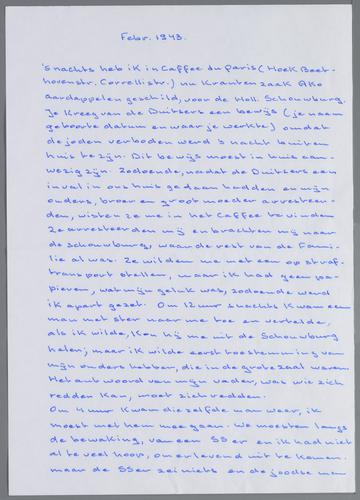 Febr. 1943.
's nachts heb ik in Caffee du Paris (Hoek Beet-
hovenstr. Correllistr.) nu Krantenzaak AKO
aardappelen geschild, voor de Holl. Schouwburg.
Je Kreeg van de Duitsers een bewijs (je naam
geboorte datum en waar je werkte) omdat
de joden verboden werd 's nacht buiten
huis te zijn. Dit bewijs moest in huis aan-
wezig zijn. Zodoende, nadat de Duitsers een
inval in ons huis gedaan hadden en mijn
ouders, broer en grootmoeder arresteer-
den, wisten ze me in het Caffee te vinden
Ze arresteerden mij en brachten mij naar
de schouwburg, waar de rest van de Fami-
lie al was. Ze wilden me met een op straf-
transport stellen, maar ik had geen pa-
pieren, wat mijn geluk was, zodoende werd
ik apart gezet. Om 12 uur snachts Kwam een
man met ster naar me toe en vertelde,
als ik wilde, Kon hij me uit de Schouwburg
helen; maar ik wilde eerst toestemming van
mijn ouders hebben, die in de grote zaal waren.
Het antwoord van mijn vader, was wie zich
redden Kan, moet zich redden.
Om 4 uur Kwam diezelfde man weer, ik
moest met hem mee gaan. We moesten langs
de bewaking, van een SS er en ik had niet
al te veel hoop, om er levend uit te Komen.
maar de SSer zei niets en de joodse man